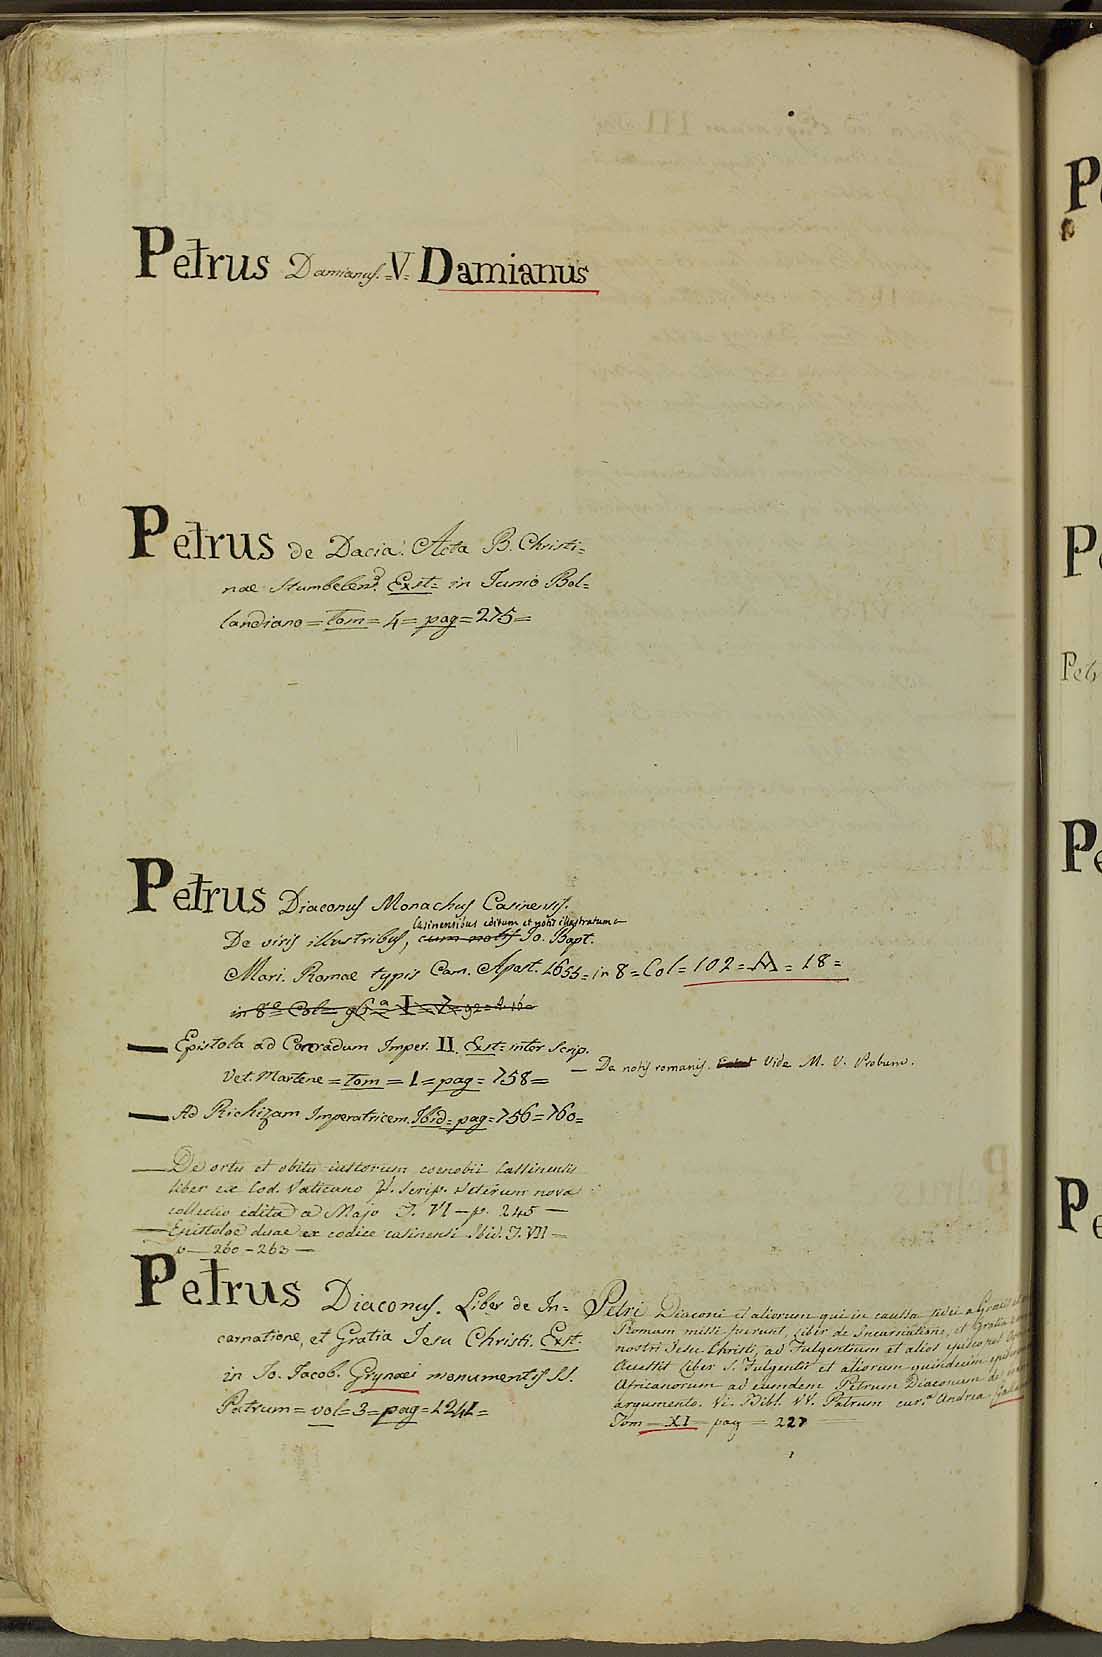 Petrus Damianus. =V= Damianus
Petrus de Dacia. Acta B. Christi=
nae Stumbelens. Exst= in Junio Bol=
landiano = tom = 4 = pag = 275 =
Petrus Diaconus Monachus Casinensis.
Casinensibus editum et notis illustratum
De viris illustribus, cum notis Io. Bapt.
Mari. Romae typis Cam. Apost. 1655 = in 8 = Col = 102 = A = 18 =
in 8º Col= 96 a I = 7 =
Epistola ad Conradum Imper. II. Exst= inter Scrip.
Vet. Martene = tom = 1 = pag = 758 =
— De notis romanis. Exstat Vide M. V. Probum.
Ad Richizam Imperatricem. Ibid= pag = 756 = 760 =
— De ortu et obitu iustorum coenobii Cassinensis
liber ex Cod. Vaticano V. Scrip. Veterum nova
collectio edita a Majo T. VI — p. 245 —
— Epistolae duae ex codice casinensi Ibid. T. VII —
p — 260 - 263 —
Petrus Diaconus. Liber de In=
carnatione, et Gratia Iesu Christi. Exst.
in Io. Jacob. Grynaei monumentis SS.
Patrum = vol = 3 = pag = 1241 =
Petri Diaconi et aliorum qui in caussa fidei a Graecis
Romam missi fuerunt, liber de Incarnatione, et Gratia
nostri Jesu Christi, ad Fulgentium et alios episcopos
Accessit liber S. Fulgentii et aliorum quindecim
Africanorum ad eumdem Petrum Diaconum de
argumento. Vi. Bibl. VV. Patrum cur.ª Andrea
Tom — XI — pag — 227
P
P
Petr
P
P